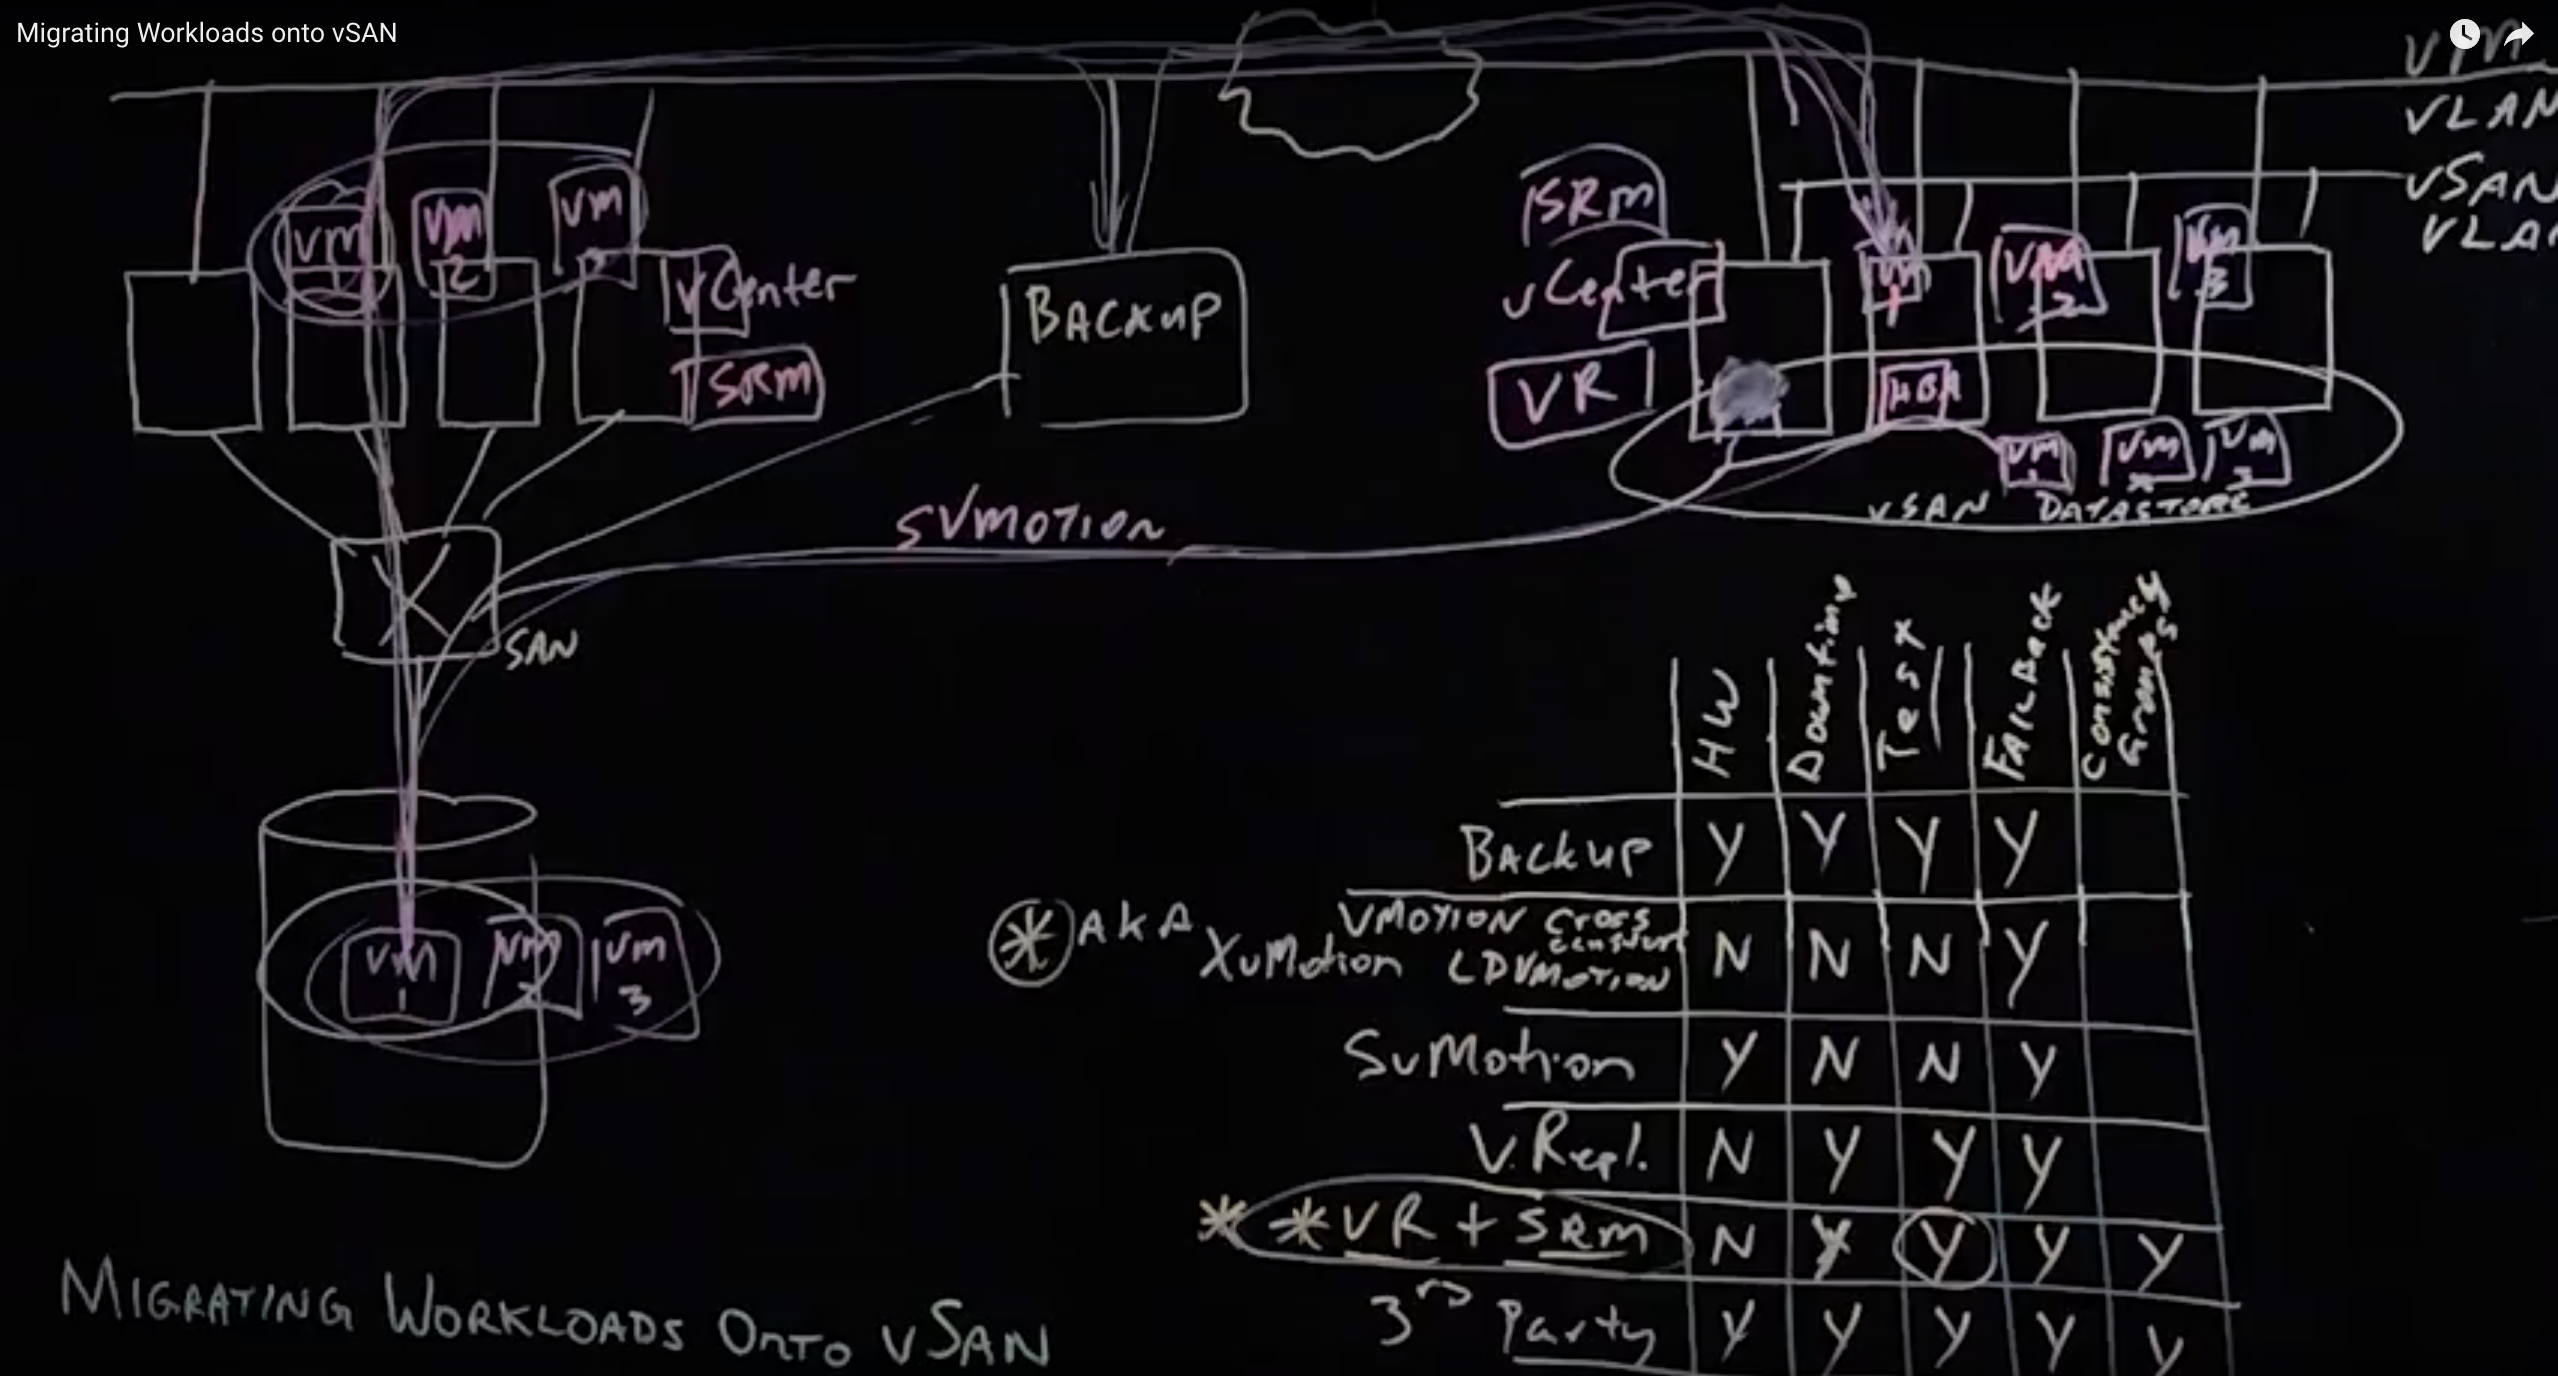 Migrating Workloads onto vSAN
VLAN
vSAN
VLA
vm
1
vm
2
vm
vCenter
SRM
BACKUP
SRM
vCenter
VR
vm
1
vm
2
vm
3
HBA
vm
1
vm
vm
vSAN DATASTORE
SVMOTION
SAN
vm
1
vm
2
vm
3
HW
Downtime
Test
FAILBack
Consistency
Groups
BACKUP Y Y Y Y
* AKA XvMotion
VMOTION Cross
LDVMOTION N N N Y
SvMotion Y N N Y
V.Repl. N Y Y Y
* * VR + SRM N Y Y Y Y
3rd Party Y Y Y Y Y
MIGRATING WORKLOADS ONTO vSAN